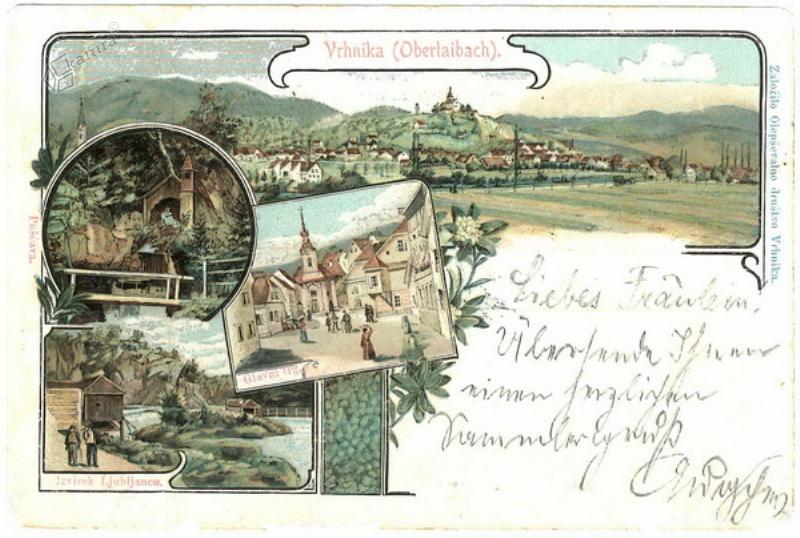 kamra
Vrhnika (Oberlaibach).
Založilo Olepševalno društvo Vrhnika.
Puščava.
Glavni trg.
Izvirek Ljubljance.
Liebes Fräulein.
Übersende Ihnen
einen herzlichen
Sammlergruß